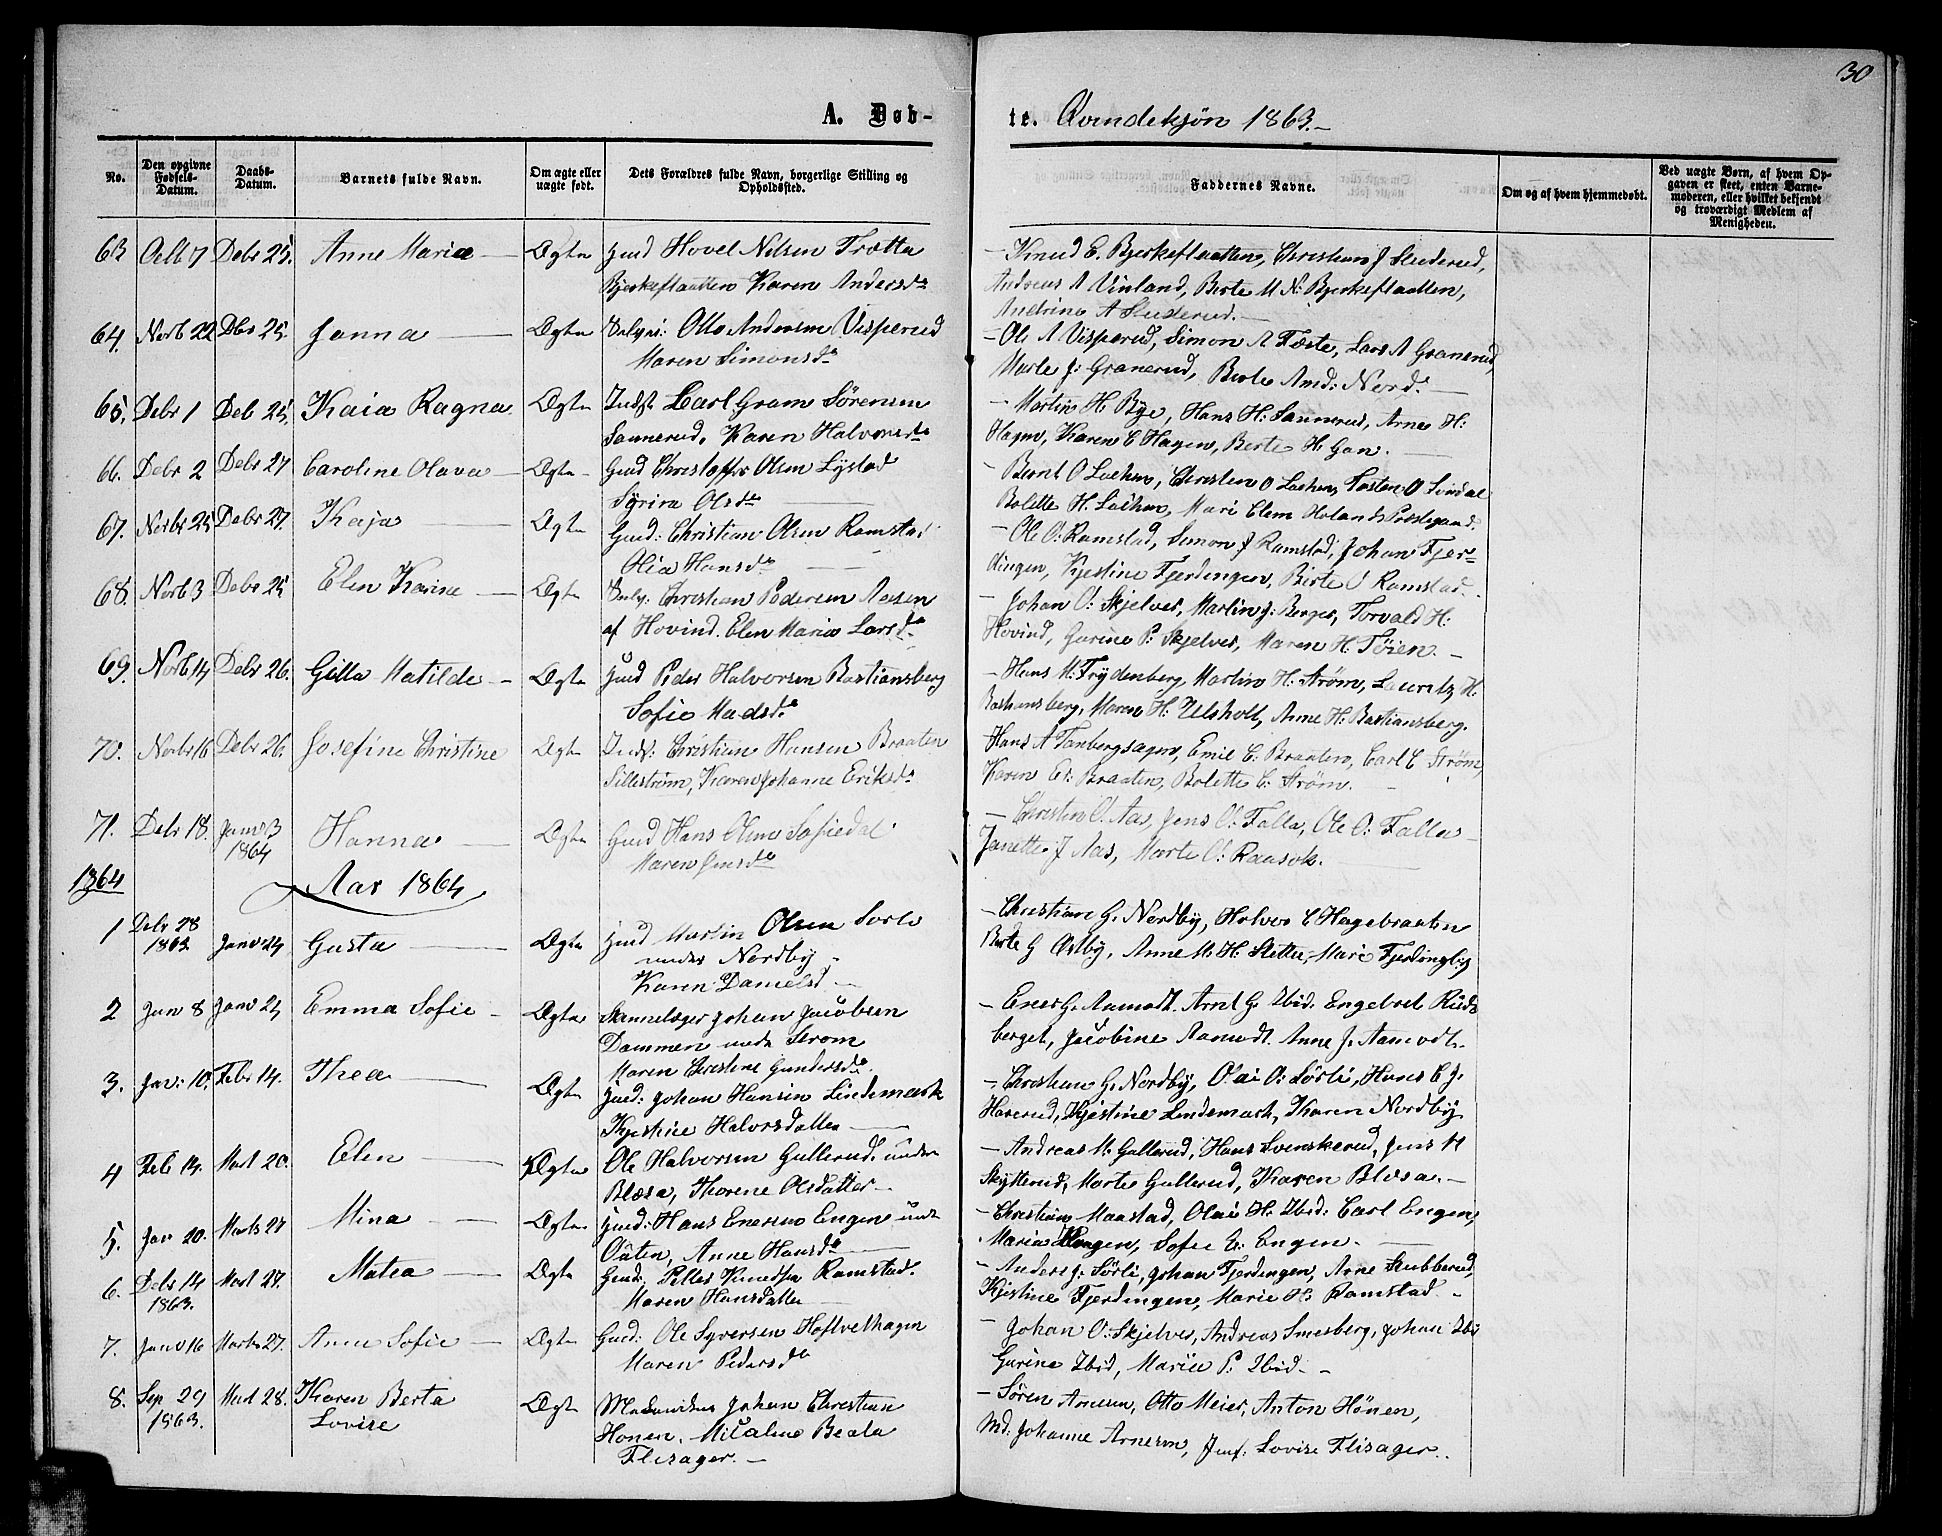 30
A. Døb-
te. Qvindekjøn 1863.-
No.
Den opgivne Fødsels-Datum.
Daabs-Datum.
Barnets fulde Navn.
Om ægte eller uægte født.
Dets Forældres fulde Navn, borgerlige Stilling og Opholdssted.
Faddernes Navne.
Om og af hvem hjemmedøbt.
Ved uægte Børn, af hvem Opgaven er skeet, enten Barnemoderen, eller hvilket bekjendt og troværdigt Medlem af Menigheden.
63 Octb 7 Debr 25. Anne Maria - Ægte Gmd Hovel Nilsen Trætta
Bjerkeflaatten Karen Andersd.
- Knud E. Bjerkeflaatten, Christian J Sluderud,
Andreas A Vinland, Berte M N. Bjerkeflaatten,
Andrine A Sluderud.-
64. Novb 22 Dbr 25. Janna - Ægte Otto Andersen Visperud
Maren Simonsd.
- Ole A Visperud, Simon A Fæste, Lars A Granerud,
Marte J: Granerud, Berte Amd: Nord.
65. Debr 1 Deb 25. Kaia Ragna Ægte Indst Carl Gram Sörensen
Sannerud, Karen Halvorsd.
- Martin H. Bye, Hans H: Sannerud, Arne H:
Hagen, Karen C Hagen, Berte H. Gan.
66. Debr 2 Debr 27 Caroline Olava - Ægte Gmd Christoffer Olsen Lystad
Syrine Olsd.
- Bernt O Lachen, Christen O Lachen, Tosten O
Bolette H. Lachen, Mari Clem Hølands Præstegaard.
67. Novbr 25 Debr 27. Kaja - Ægte Gmd: Christian Olsen Ramstad
Olia Hansd.
- Ole O: Ramstad, Simon J Ramstad, Johan Fjer-
dingen, Kjestine Fjerdingen, Berte O Ramstad.
68. Novb 3 Debr 25 Elen Karine - Ægte Christian Pedersen Aasen
af Hovind. Elen Maria Larsd.
- Johan O: Skjelver, Martin J: Berger, Torvald H:
Hovind, Gurine P: Skjelver, Maren H. Töien -
69. Novb 14 Debr 26. Gilla Matilde - Ægte Gmd Peder Halvorsen Bastiansberg
Sofie Madsd.
- Hans M. Frydenberg, Martin H: Ström, Lauritz H.
Bastiansberg, Maren H: Ulsholt, Anne H. Bastiansberg.
70. Novbr 16 Debr 26. Josefine Christine Ægte Indst: Christian Hansen Braaten
Sillestrøm, Karen Johanne Eriksd.
Hans A Tanbergsagen, Emil C. Braaten, Carl C Strøm,
Karen E: Braaten, Bolette C: Strøm. -
71. Debr 18. Janv 3 1864 Hanna - Ægte Gmd Hans Olsen Sofiedal
Maren Jensd.
- Christen O. Aas, Jens O: Falla, Ole O: Falla -
Janette J Aas, Marte O: Raasok.
1864
Aar 1864
1 Debr 28 1863 Janv 24 Gusta - Ægte Gmd Martin Olsen Sorte
under Nordby -
Karen Danielsd -
- Christian G. Nordby, Halvor C Hagebraaten
Berte G Østby, Anne M. H. Slettu, Mari Fjerdingby
2 Jan 8 Janv 24 Emma Sofie - Ægte Johan Jacobsen
Dammen under Strøm
Maren Christine Gundersd.
- Ener G. Aamodt. Arnt G. Ibid. Engebret Ruds
berget, Jacobine Aamodt. Anne J. Aamodt.
3. Jan: 10. Febr 14. Thea - Ægte Gmd: Johan Hansen Lindemark
Kjestine Halvorsdatter -
- Christian G. Nordby, Olai O: Sörli, Hans C J.
Haverud, Kjestine Lindemark, Karen Nordby
4 Feb 14. Mart 20. Elen - Ægte Ole Halvorsen Gullerud under
Blæsa, Thorene Olsdatter -
- Andreas M. Gullerud, Hans Svenskerud, Jens H
Skytterud, Marte Gullerud, Karen Blæsa. -
5. Jan 20. Marts 27 Mina - Ægte Gmd: Hans Enersen Engen under
Outen, Anne Hansd.
- Christian Maastad, Olai H. Ibid: Carl Engen,
Maria Engen, Sofie E: Engen. -
6. Debr 14 1863. Mart 27. Matea - Ægte Gmd: Peder Knudsen Ramstad.
Maren Hansdatter -
- Anders J. Sörli, Johan Fjerdingen, Arne Stubberud,
Kjestine Fjerdingen, Marie H. Ramstad -
7. Janv 16 Marts 27. Anne Sofie - Ægte Gmd: Ole Syversen Hoftvethagen
Maren Pedersd.
- Johan O: Skjelver, Andreas Smesberg, Johan Ibid
Gurine Ibid, Marie P. Ibid. -
8. Sep 29 1863. Mart 28. Karen Berta
Lovise Ægte Johan Christian
Honen. Beata
Flisager. -
- Sören Arnesen, Otto Meier, Anton Hönen,
Md: Johanne Arnesen, Jmf: Lovise Flisager.